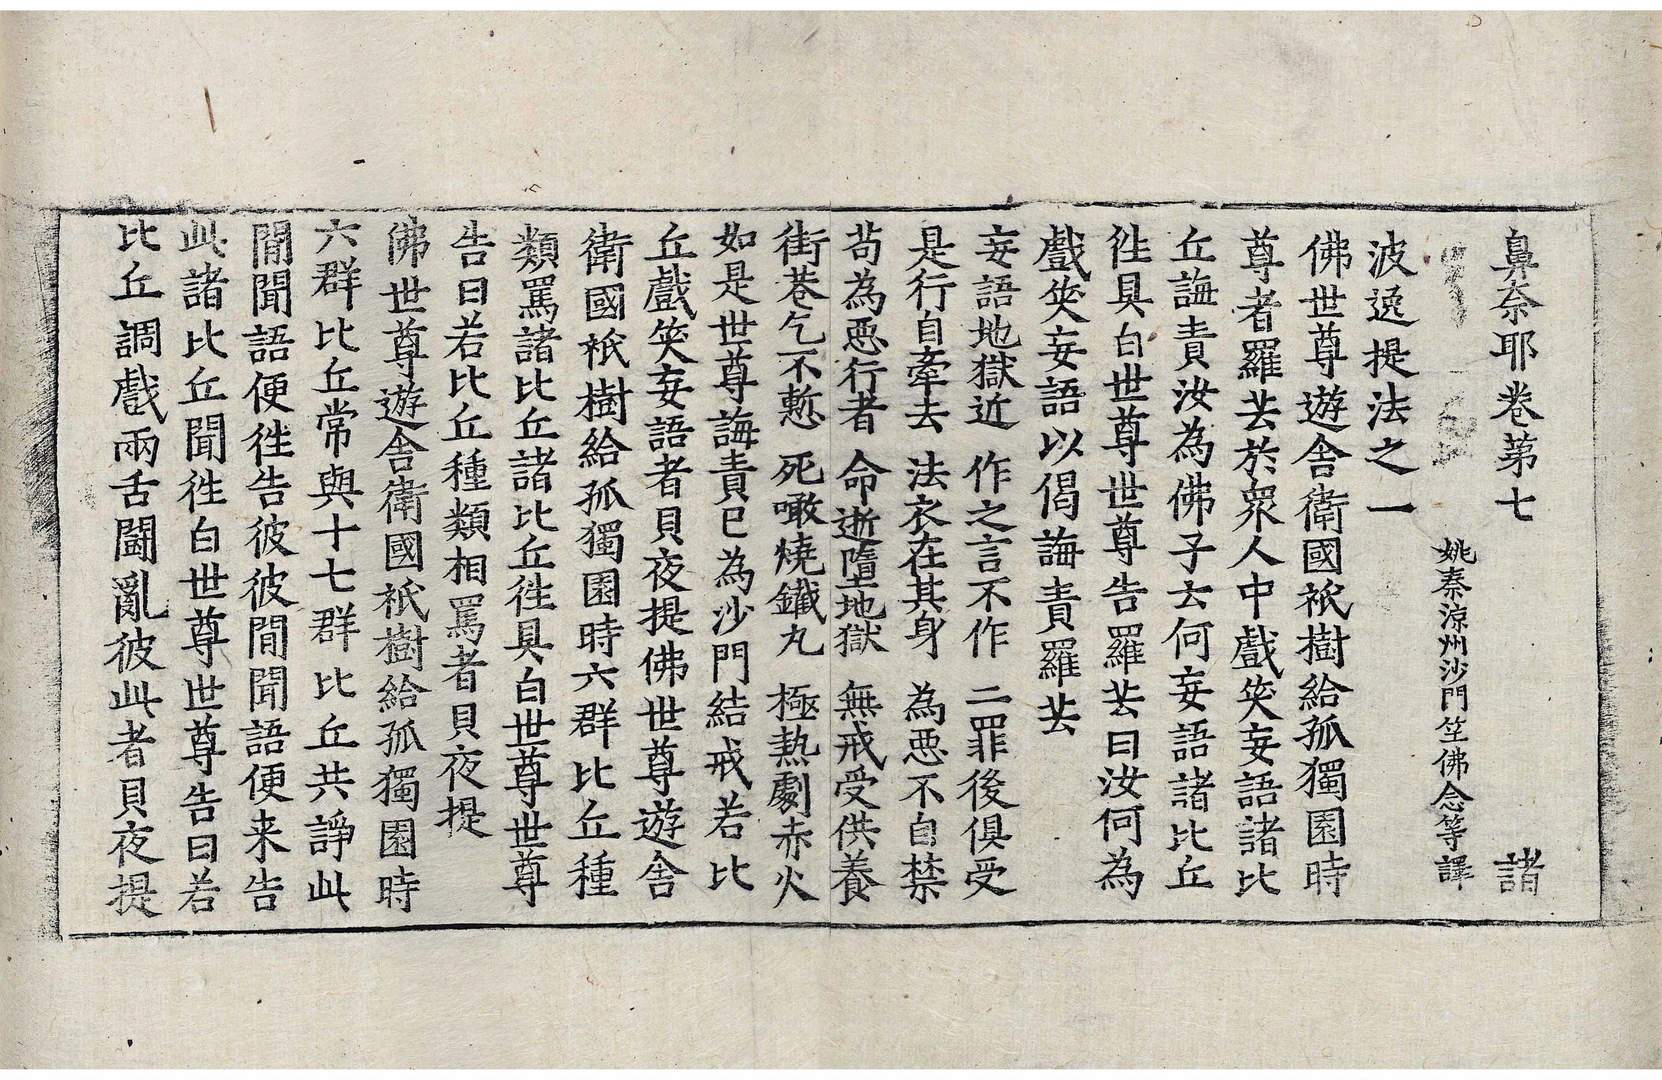 鼻奈耶卷第七 諸
姚秦涼州沙門竺佛念等譯
波逸提法之一
佛世尊遊舍衛國祇樹給孤獨園時
尊者羅芸於衆人中戲笑妄語諸比
丘誨責汝為佛子云何妄語諸比丘
徃具白世尊世尊告羅芸曰汝何為
戲笑妄語以偈誨責羅芸
妄語地獄近 作之言不作 二罪後俱受
是行自牽去 法衣在其身 為惡不自禁
茍為惡行者 命逝墮地獄 無戒受供養
街巷乞不慙 死噉燒鐵丸 極熱劇赤火
如是世尊誨責已為沙門結戒若比
丘戲笑妄語者貝夜提佛世尊遊舍
衛國祇樹給孤獨園時六群比丘種
類罵諸比丘諸比丘徃具白世尊世尊
告曰若比丘種類相罵者貝夜提
佛世尊遊舍衛國祇樹給孤獨園時
六群比丘常與十七群比丘共諍此
間聞語便徃告彼彼間聞語便来告
此諸比丘聞徃白世尊世尊告曰若
比丘調戲兩舌鬪亂彼此者貝夜提